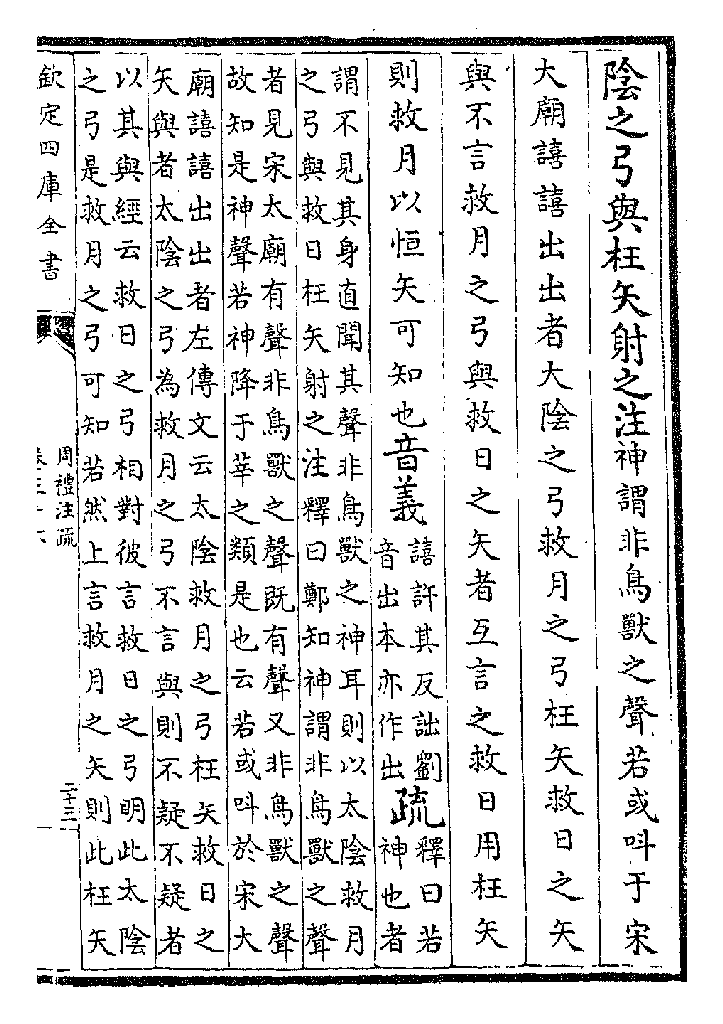 陰之弓與枉矢射之注神謂非鳥獸之聲若或叫于宋
大廟譆譆出出者大陰之弓救月之弓枉矢救日之矢
與不言救月之弓與救日之矢者互言之救日用枉矢
則救月以恒矢可知也音義譆許其反詘劉
音出本亦作出疏釋曰若
神也者
謂不見其身直聞其聲非鳥獸之神耳則以太陰救月
之弓與救日枉矢射之注釋曰鄭知神謂非鳥獸之聲
者見宋太廟有聲非鳥獸之聲既有聲又非鳥獸之聲
故知是神聲若神降于莘之類是也云若或叫於宋大
廟譆譆出出者左傳文云太陰救月之弓枉矢救日之
矢與者太陰之弓為救月之弓不言與則不疑不疑者
以其與經云救日之弓相對彼言救日之弓明此太陰
之弓是救月之弓可知若然上言救月之矢則此枉矢
欽定四庫全書
周禮注疏
卷三十六
二十三